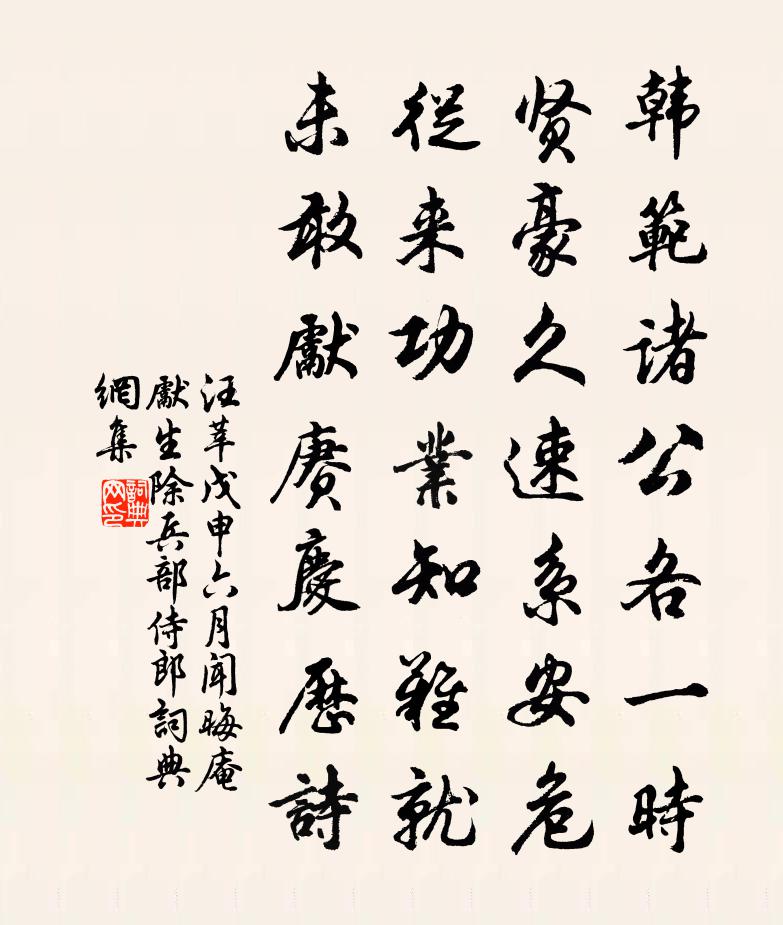 韩範诸公各一時
贤豪久速系安危
從来功業知難就
未敢獻赓慶歷詩
汪莘戊申六月闻晦庵
獻生除兵部侍郎詞典
網集
詞典网印